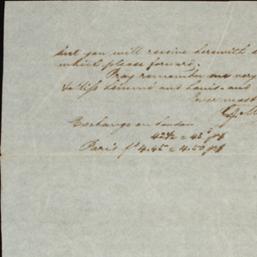 but you will receive herewith
which please forward.
Pray remember me very
to Miss and Louis. and
Ever most
Exchange on London
42½ @ 42
Paris f 4.45 @ 4.50